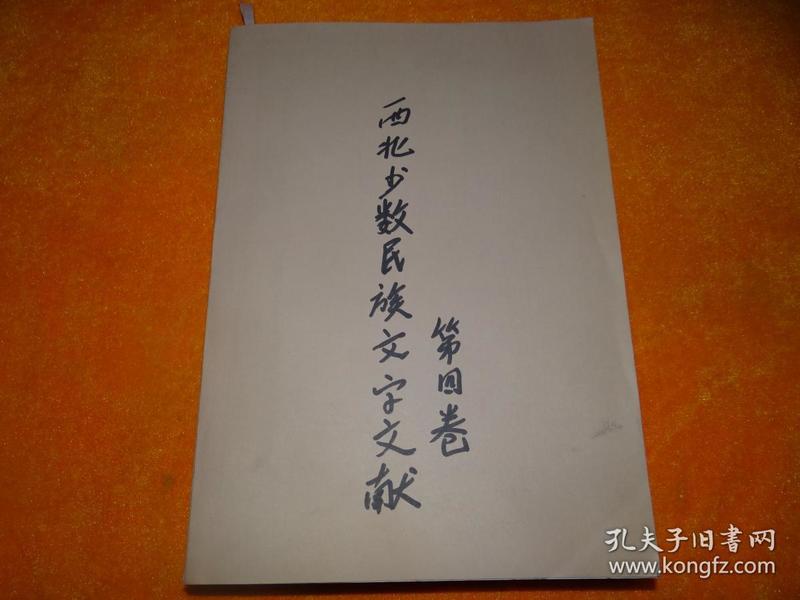 西北少数民族文字文献
第四卷
孔夫子旧书网
www.kongfz.com